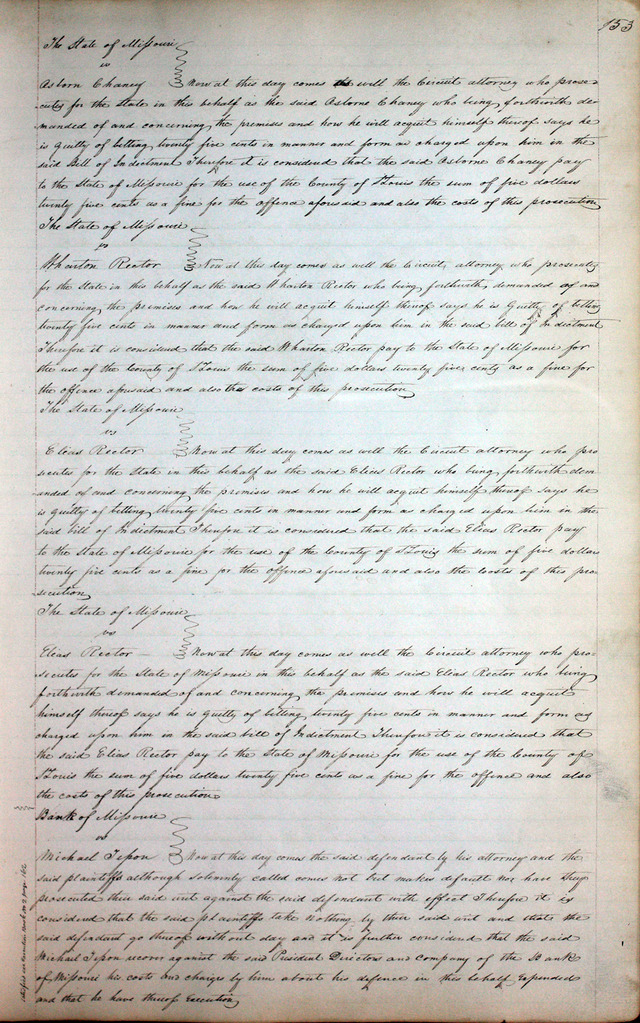 153
The State of Missouri
vs
Asborn Chaney Now at this day comes as well the Circuit attorney who prose=
cutes for the State in this behalf as the said Asborne Chaney who being forthwith de
manded of and concerning the premises and how he will acquit himself therof says he
is guilty of betting twenty five cents in manner and form as charged upon him in the
said Bill of Indictment Therefore it is considered that the said Asborne Chaney pay
to the State of Missouri for the use of the County of St Louis the sum of five dollars
twenty five cents as a fine for the offence aforesaid and also the costs of this prosecution
The State of Missouri
vs
Wharton Rector Now at this day comes as well the Circuit attorney who prosecutes
for the State in this behalf as the said Wharton Rector who being forthwith demanded of and
concerning the premises and how he will acquit himself therof says he is Guilty of betting
twenty five cents in manner and form as charged upon him in the said bill of Indictment
Therefore it is considered that the said Wharton Rector pay to the State of Missouri for
the use of the County of St Louis the sum of five dollars twenty five cents as a fine for
the offence aforesaid and also the costs of this prosecution
The State of Missouri
vs
Elias Rector Now at this day comes as well the Circuit attorney who pro
secutes for the State in this behalf as the said Elias Rector who being forthwith dem
anded of and concerning the premises and how he will acquit himself therof says he
is guilty of betting twenty five cents in manner and form as charged upon him in the
said bill of Indictment Therefore it is considered that the said Elias Rector pay
to the State of Missouri for the use of the County of St Louis the sum of five dollars
twenty five cents as a fine for the offence aforesaid and also the Costs of this pro
secution
The State of Missouri
vs
Elias Rector — Now at this day comes as well the Circuit attorney who pro=
secutes for the State of Missouri in this behalf as the said Elias Rector who being
forthwith demanded of and concerning the premises and how he will acquit
himself therof says he is guilty of betting twenty five cents in manner and form as
charged upon him in the said bill of Indictment Therefore it is considered that
the said Elias Rector pay to the State of Missouri for the use of the County of
St Louis the sum of five dollars twenty five cents as a fine for the offence and also
the costs of this prosecution
Bank of Missouri
vs
Michael Tesson Now at this day comes the said defendant by his attorney and the
said plaintiffs although solemnly called comes not but makes default nor have they
prosecuted their said writ against the said defendant with effect Therefore it is
considered that the said plaintiffs take nothing by their said writ and that the
said defendant go therof without day and it is further considered that the said
Michael Tesson recover against the said President Directors and company of the Bank
of Missouri his costs and charges by him about his defence in this behalf Expended
and that he have therof Execution